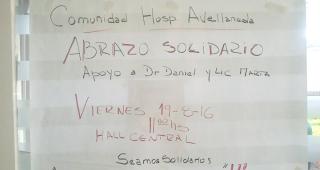 Comunidad Hosp Avellaneda
ABRAZO SOLIDARIO
Apoyo a Dr Daniel y Lic MARTA
VIERNES 19-8-16
11 00 HS
HALL CENTRAL
Seamos Solidarios